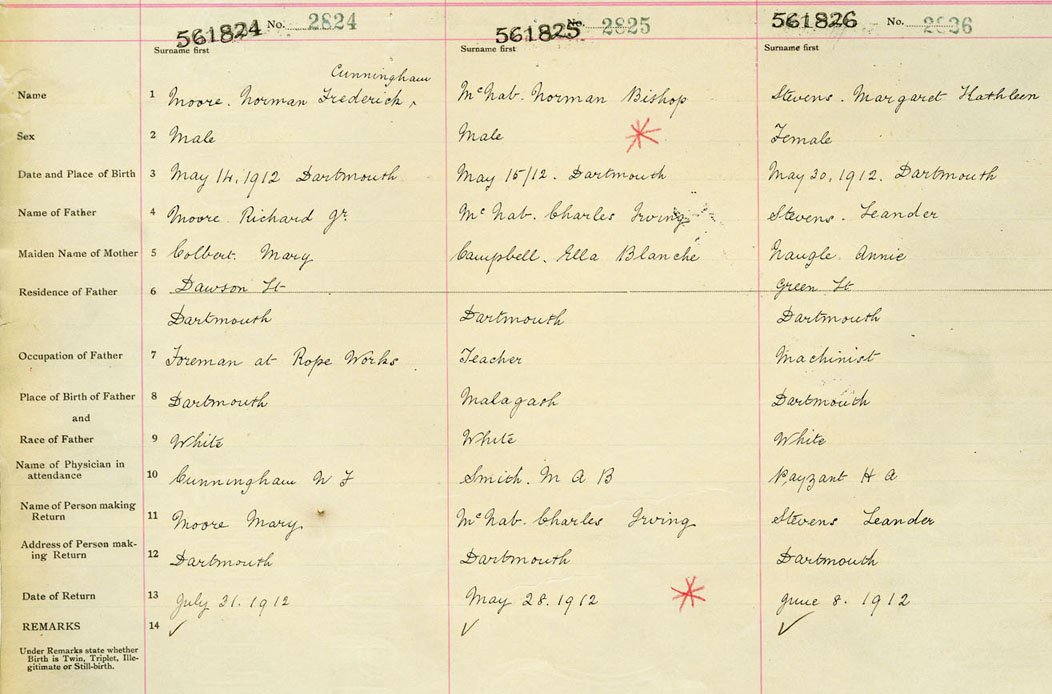 561824 No. 2824 561825 No. 2825 561826 No. 2826
Surname first Surname first Surname first
Cunningham
Name 1 Moore. Norman Frederick ^ McNab. Norman Bishop Stevens. Margaret Kathleen
Sex 2 Male Male Female
Date and Place of Birth 3 May 14, 1912 Dartmouth May 15/12. Dartmouth May 30, 1912. Dartmouth
Name of Father 4 Moore Richard Jr. McNab. Charles Irving Stevens. Leander
Maiden Name of Mother 5 Colbert. Mary Campbell. Ella Blanche Naugle. Annie
Residence of Father 6 Dawson St Green St
Dartmouth Dartmouth Dartmouth
Occupation of Father 7 Foreman at Rope Works Teacher Machinist
Place of Birth of Father 8 Dartmouth Malagash Dartmouth
and
Race of Father 9 White White White
Name of Physician in
attendance 10 Cunningham N F Smith. M A B Payzant H A
Name of Person making
Return 11 Moore Mary. McNab. Charles Irving Stevens Leander
Address of Person mak-
ing Return 12 Dartmouth Dartmouth Dartmouth
Date of Return 13 July 31. 1912 May 28. 1912 June 8. 1912
REMARKS 14 ✓ ✓ ✓
Under Remarks state whether
Birth is Twin, Triplet, Ille-
gitimate or Still-birth.